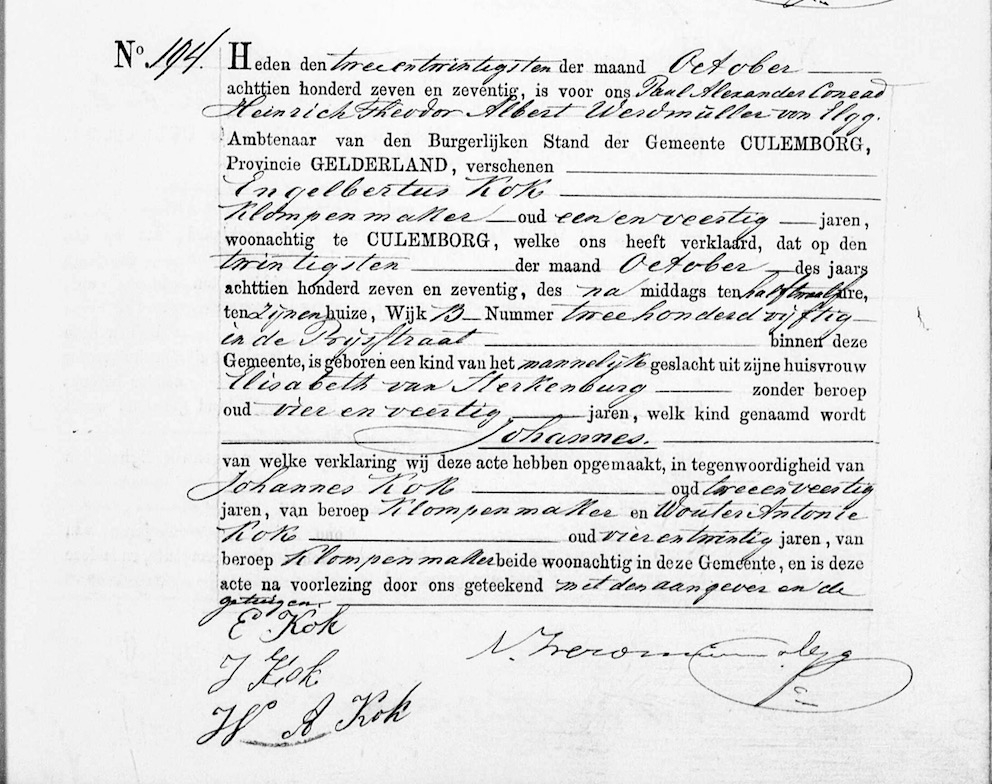 No. 194. Heden den twee en twintigsten der maand October
achttien honderd zeven en zeventig, is voor ons Paul Alexander Conrad
Heinrich Theodor Albert Werdmuller von Elgg.
Ambtenaar van den Burgerlijken Stand der Gemeente CULEMBORG,
Provincie GELDERLAND, verschenen
Engelbertus Kok
Klompenmaker oud een en veertig jaren,
woonachtig te CULEMBORG, welke ons heeft verklaard, dat op den
twintigsten der maand October des jaars
achttien honderd zeven en zeventig, des na middags ten half twaalf ure,
ten zijnen huize, Wijk B Nummer twee honderd vijftig
in de Prijsstraat binnen deze
Gemeente, is geboren een kind van het mannelijk geslacht uit zijne huisvrouw
Elisabeth van Sterkenburg zonder beroep
oud vier en veertig jaren, welk kind genaamd wordt
Johannes.
van welke verklaring wij deze acte hebben opgemaakt, in tegenwoordigheid van
Johannes Kok oud twee en veertig
jaren, van beroep Klompenmaker en Wouter Antonie
Kok oud vier en twintig jaren, van
beroep Klompenmaker beide woonachtig in deze Gemeente, en is deze
acte na voorlezing door ons geteekend met den aangever en de
getuigen.
E Kok
J Kok
W A Kok